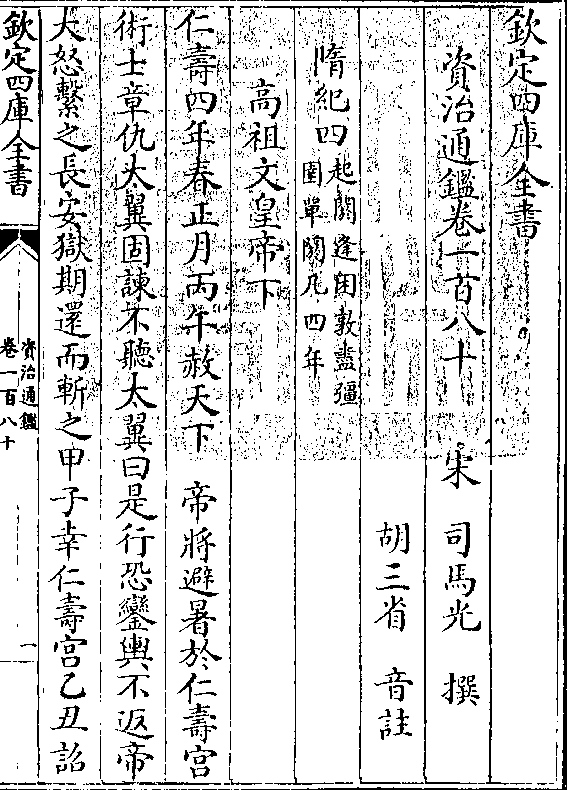 欽定四庫全書
資治通鑑卷一百八十
宋 司馬光 撰
胡三省 音註
隋紀四起閼逢困敦盡彊
圉單閼凡四年
高祖文皇帝下
仁壽四年春正月丙午赦天下 帝將避暑於仁壽宮
術士章仇太翼固諫不聽太翼曰是行恐鑾輿不返帝
大怒繫之長安獄期還而斬之甲子幸仁壽宮乙丑詔
欽定四庫全書
資治通鑑
卷一百八十
一